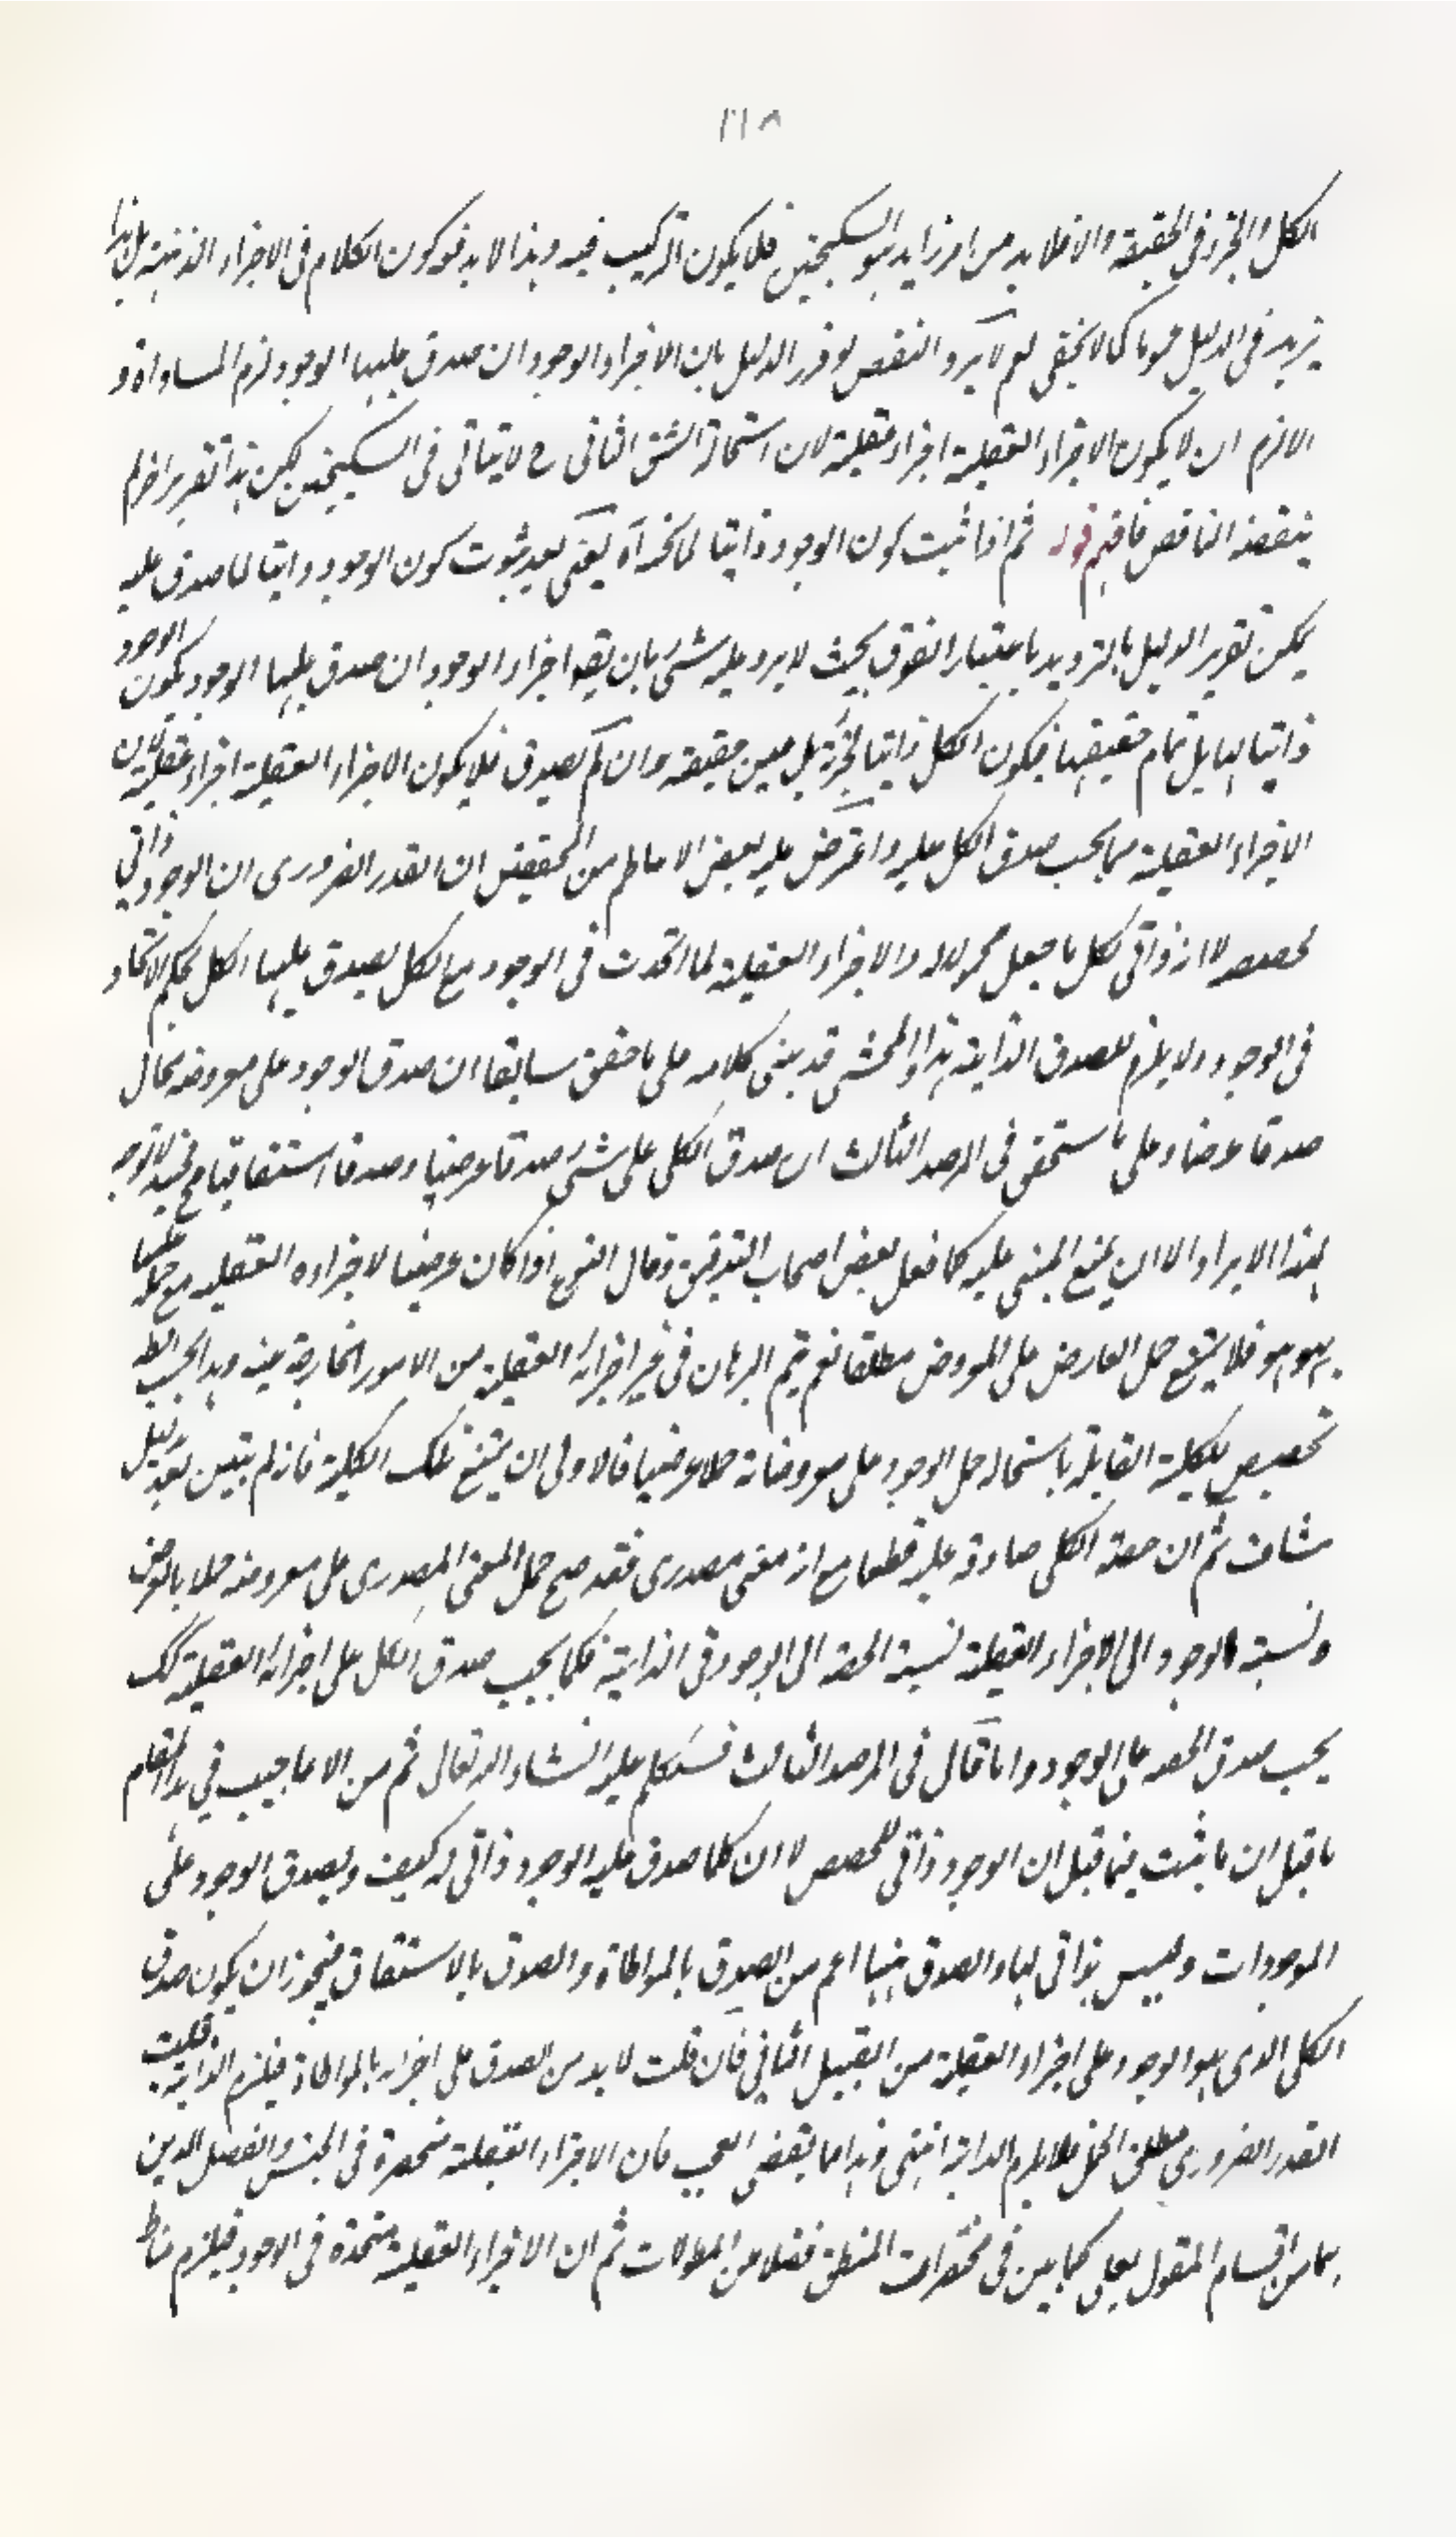 ٢١٨
الكل والجزء في الحقيقة والا فلا بد من امر زايد هو السكنجبين فلا يكون التركيب فيه وهذا لا يدفع كون الكلام في الاجزاء الذهنية بل هذا
يزيد في الدليل كما لا يخفى نعم لا يرد النقض لو قرر الدليل بان الاجزاء الوجود ان صدق عليها الوجود لزم المساواة و
الا لزم ان لا يكون الاجزاء العقلية اجزاء عقلية لان استحالة الشق الثاني ح لا يتاتى في السكنجبين لكن هذا تقرير اخر لم
ينقضه الناقض فافهم قوله ثم اذا ثبت كون الوجود ذاتيا لما تحته آه يعني بعد ثبوت كون الوجود ذاتيا لما صدق عليه
يمكن تقرير الدليل بالترديد باعتبار الفوق بحيث لا يرد عليه شيء بان يقه اجزاء الوجود ان صدق عليها الوجود يكون الوجود
ذاتيا لها بل تمام حقيقتها فيكون الكل ذاتيا لجزئه بل عين حقيقته وان لم يصدق فلا يكون الاجزاء العقلية اجزاء عقلية لان
الاجزاء العقلية مما يجب صدق الكل عليه واعترض عليه بعض الاعاظم من المحققين ان القدر الضروري ان الوجود ذاتي
لحصصه لا انه ذاتي لكل ما جعل محمولا له والاجزاء العقلية لما اتحدت في الوجود مع الكل يصدق عليها الكل بحكم الاتحاد
في الوجود ولا يلزم للصدق الذاتية هذا والمحشي قد بنى كلامه على ما حقق سابقا ان صدق الوجود على معروضه محال
صدقا عرضا وعلى ما ستحقق في المرصد الثالث ان صدق الكلي على شيء صدقا عرضيا وصدقا اشتقاقيا فح لا توجه
لهذا الايراد الا ان يمنع المبني عليه كما فعل بعض اصحاب التدقيق وقال النوع اذا كان عرضيا لاجزاءه العقلية مع حمله عليها
بهو هو فلا يمتنع حمل العارض على المعروض مطلقا نعم يتم البرهان في غير اجزائه العقلية من الامور الخارجة عنه وهذا بحسب الظ
تخصيص للكلية القايلة باستحالة حمل الوجود على معروضاته حملا عرضيا فالاولى ان يمنع تلك الكلية فانه لم يتبين بعد بدليل
شاف ثم ان حصة الكلي صادقة عليه قطعا مع انه معنى مصدري فقد صح حمل المعنى المصدري على معروضه حملا بالعرض
ونسبة الوجود الى الاجزاء العقلية نسبة الحصة الى الوجود في الذاتية فكما يجب صدق الكل على اجزائه العقلية كك
يجب صدق الحصة على الوجود واما ما قال في المرصد الثالث فسنتكلم عليه انشاء الله تعالى ثم من الاعاجيب في هذا المقام
ما قيل ان ما يثبت فيما قبل ان الوجود ذاتي للحصص لا ان كلما صدق عليه الوجود ذاتي له كيف ويصدق الوجود على
الموجودات وليس بذاتي لها والصدق ههنا اعم من الصدق بالمواطاة والصدق بالاشتقاق فيجوز ان يكون صدق
الكلي الذي هو الوجود على اجزاء العقلية من القبيل الثاني فان قلت لا بد من الصدق على اجزائه بالمواطاة فيلزم الذاتية قلت
القدر الضروري مطلق الحمل فلا يلزم الذاتية انتهى وهذا مما يقضى العجب فان الاجزاء العقلية منحصرة في الجنس والفصل الذين
هما من اقسام المقول بعلى كما بين في مختصرات المنطق فضلا من المطولات ثم ان الاجزاء العقلية متحدة في الوجود فيلزم مناط